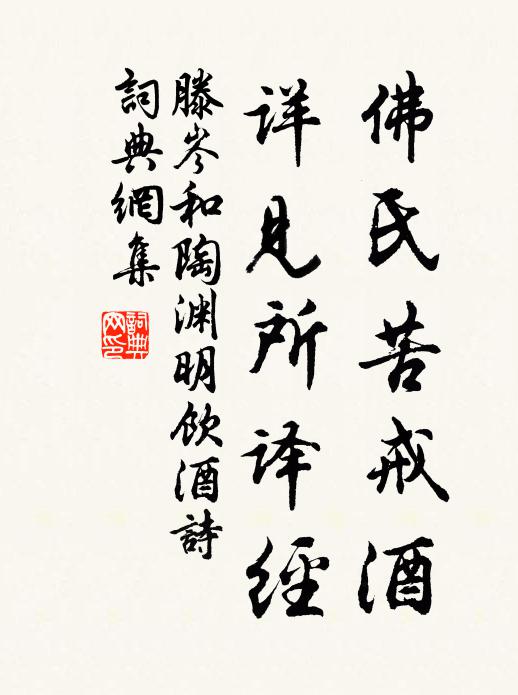 佛氏苦戒酒
详见所译經
滕岑和陶渊明饮酒詩
詞典網集
詞典
网印